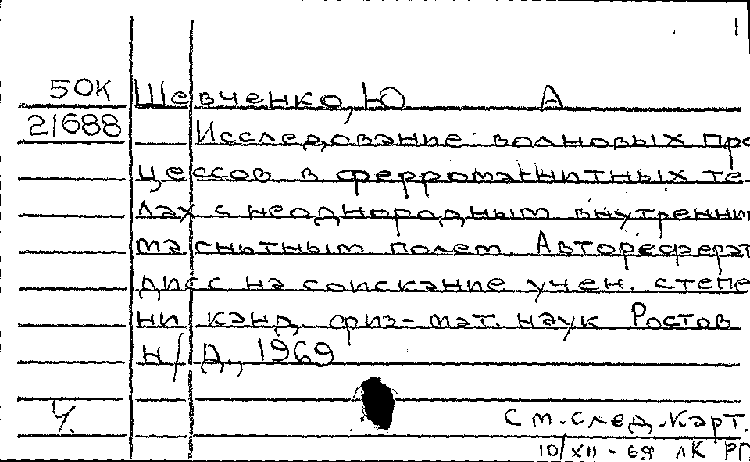 1
50К Шевченко, Ю А
21688 Исследование волновых про
цессов в ферромагнитных те
лах с неоднородным внутренним
магнитным полем. Автореферат
дисс на соискание учен. степе
ни канд. физ-мат. наук Ростов
н/Д., 1969
У.
см. след. карт
10/XII-69 ЛК РП